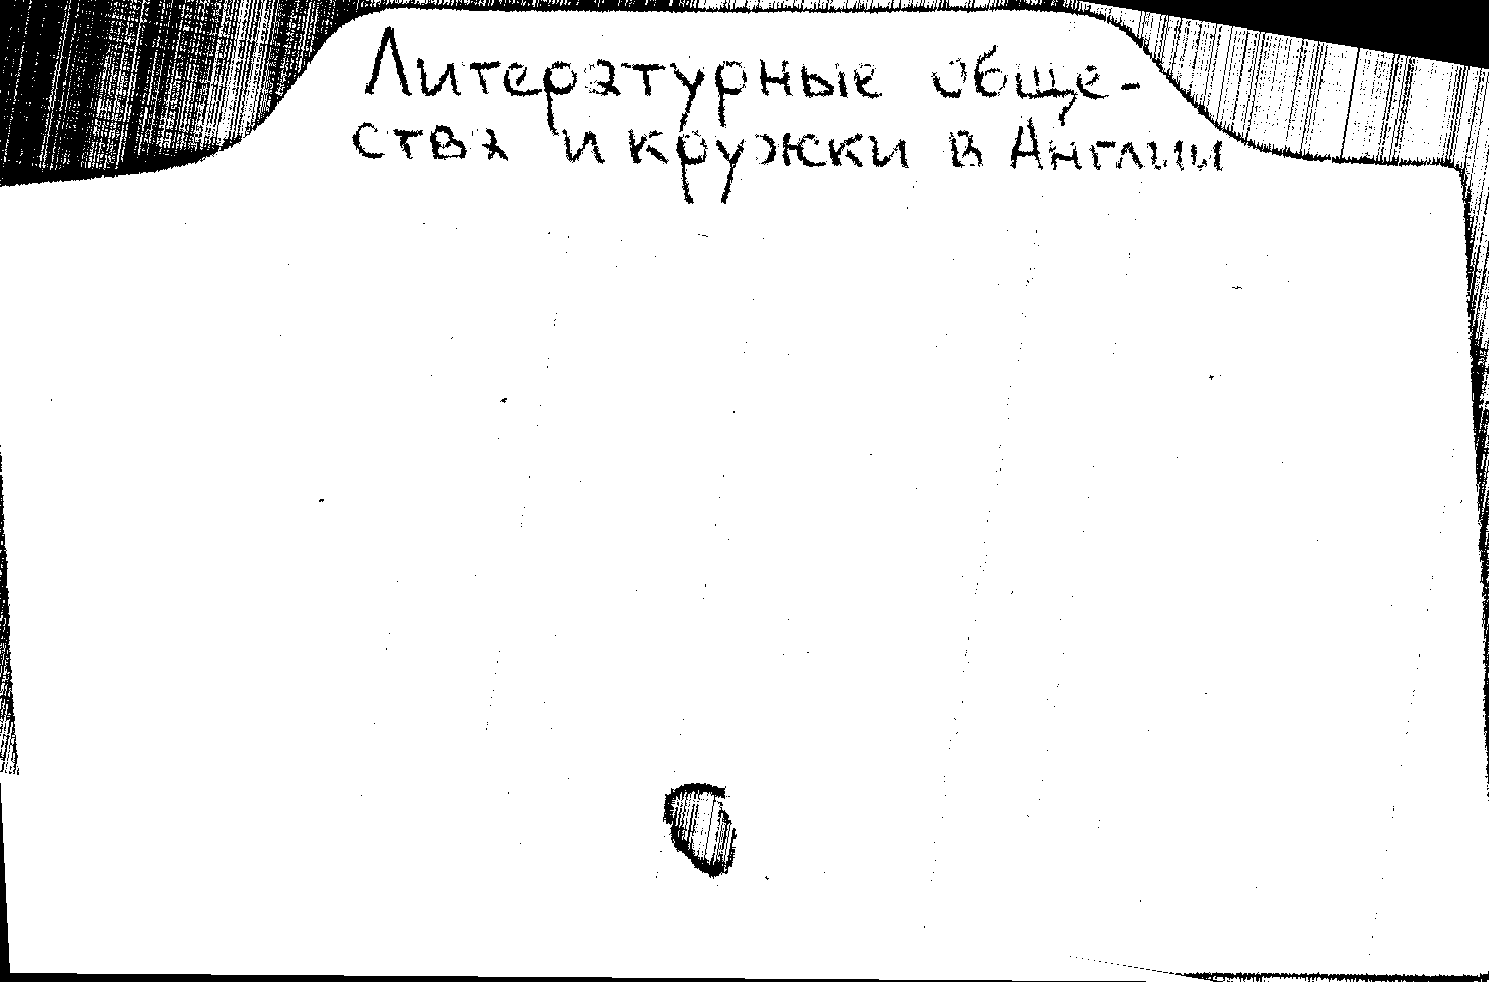 Литературные обще-
ства и кружки в Англии